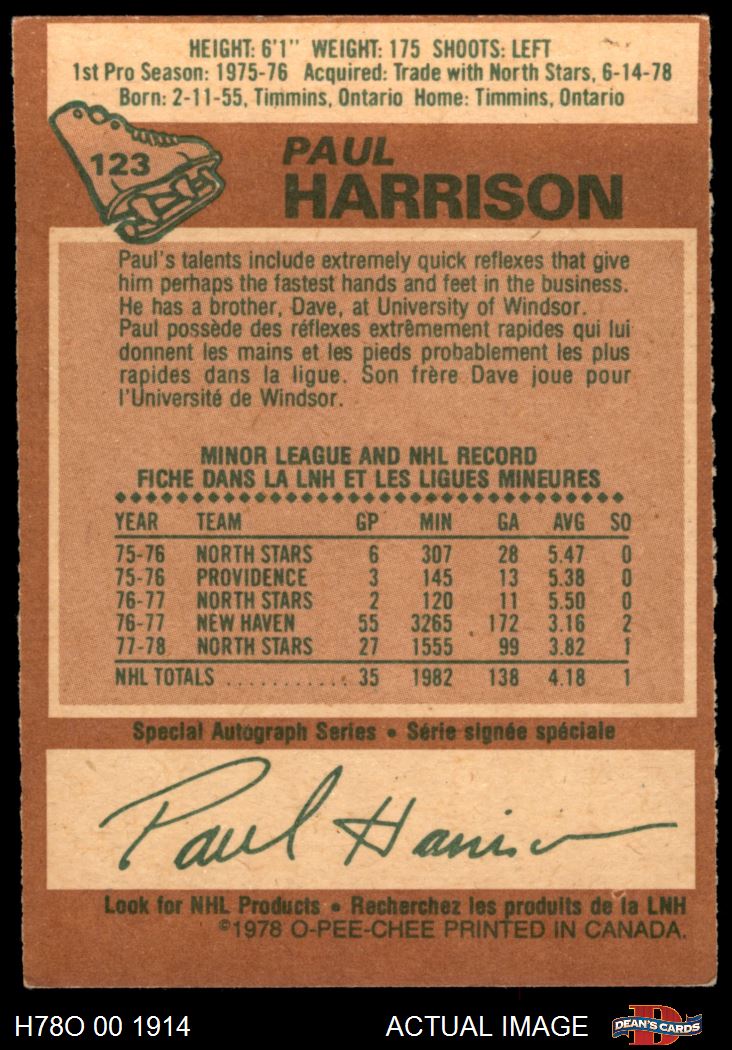 HEIGHT: 6'1" WEIGHT: 175 SHOOTS: LEFT
1st Pro Season: 1975-76 Acquired: Trade with North Stars, 6-14-78
Born: 2-11-55, Timmins, Ontario Home: Timmins, Ontario
123
PAUL
HARRISON
Paul's talents include extremely quick reflexes that give
him perhaps the fastest hands and feet in the business.
He has a brother, Dave, at University of Windsor.
Paul possède des réflexes extrêmement rapides qui lui
donnent les mains et les pieds probablement les plus
rapides dans la ligue. Son frère Dave joue pour
l'Université de Windsor.
MINOR LEAGUE AND NHL RECORD
FICHE DANS LA LNH ET LES LIGUES MINEURES
YEAR TEAM GP MIN GA AVG SO
75-76 NORTH STARS 6 307 28 5.47 0
75-76 PROVIDENCE 3 145 13 5.38 0
76-77 NORTH STARS 2 120 11 5.50 0
76-77 NEW HAVEN 55 3265 172 3.16 2
77-78 NORTH STARS 27 1555 99 3.82 1
NHL TOTALS . . . . . . . . . . . 35 1982 138 4.18 1
Special Autograph Series • Série signée spéciale
Paul Harrison
Look for NHL Products • Recherchez les produits de la LNH
©1978 O-PEE-CHEE PRINTED IN CANADA.
H78O 00 1914 ACTUAL IMAGE D DEAN'S CARDS